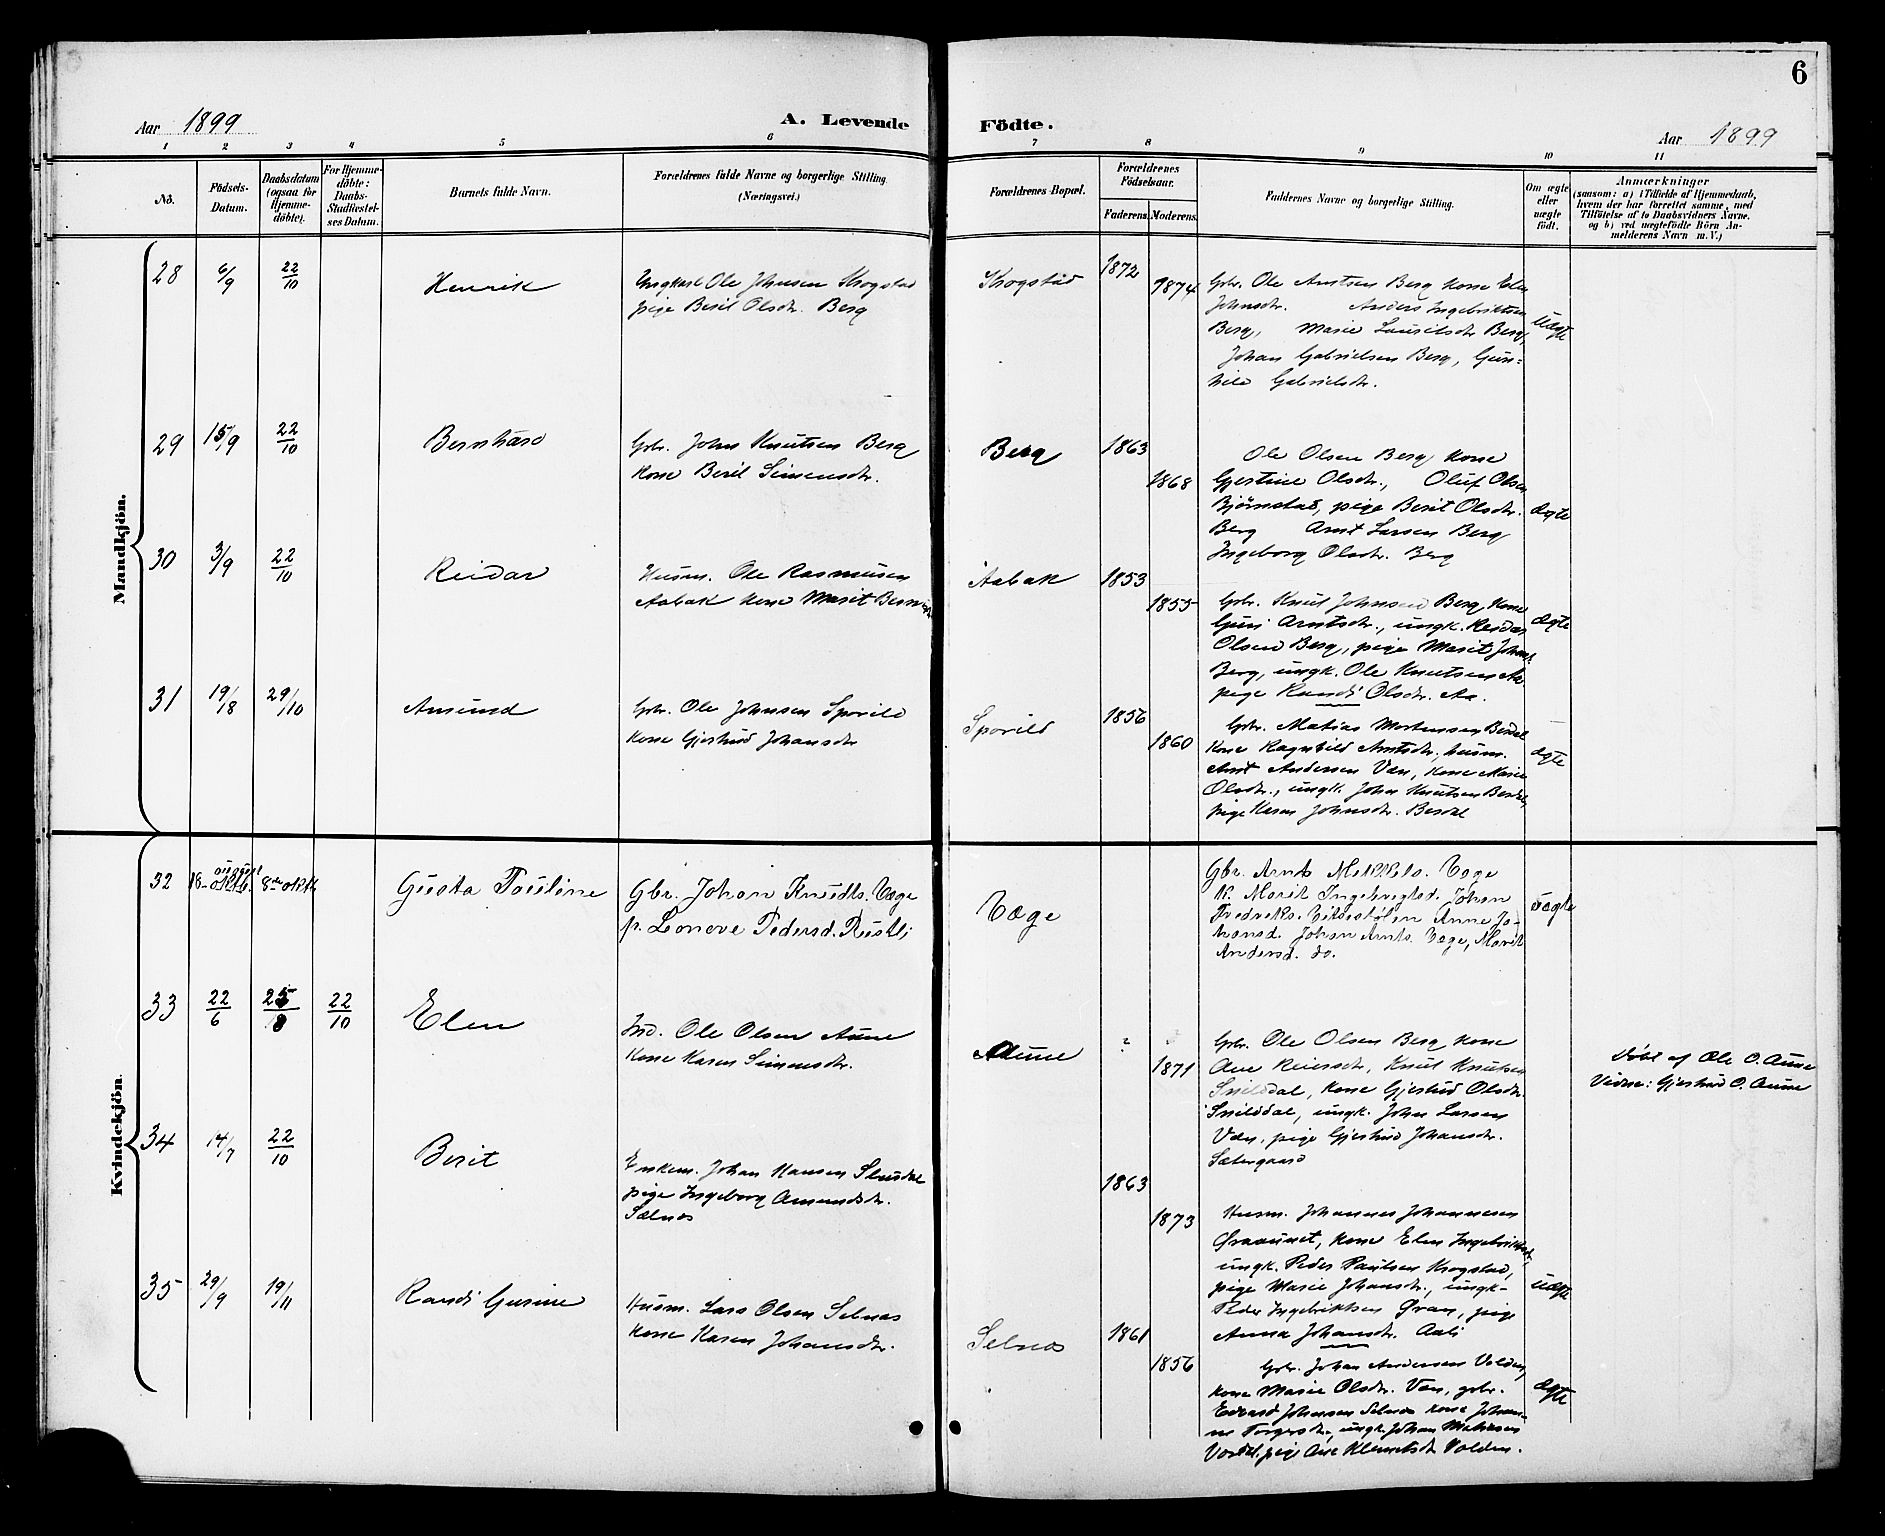 6
Aar 1899
A. Levende
Födte.
Aar 1899
1 2 3 4 5 6 7 8 9 10 11
No.
Födsels-
Datum.
Daabsdatum
(ogsaa for
Hjemme-
döbte).
For Hjemme-
döbte:
Daabs-
Stadfæstel-
ses Datum.
Barnets fulde Navn.
Forældrenes fulde Navne og borgerlige Stilling
(Næringsvei.)
Forældrenes Bopæl.
Forældrenes
Födselsaar.
Faderens. Moderens.
Faddernes Navne og borgerlige Stilling.
Om ægte
eller
uægte
födt.
Anmærkninger
(saasom: a) i Tilfælde af Hjemmedaab,
hvem der har forrettet samme, med
Tilföielse af to Daabsvidners Navne.
og b) ved uægtefödte Börn An-
melderens Navn m. V.)
Mandkjön.
28 6/9 22/10 Henrik
Ungkarl Ole Johnsen Krogstad
pige Berit Olsdr. Berg
Krogstad 1872
1874
Gbr. Ole Arntsen Berg kone Elen
Johnsdr. Anders Ingebriktsen
Berg, Marie Lauritsdr Berg,
Johan Gabrielsen Berg, Gun-
hild Gabrielsdr.
Uægte
29 15/9 22/10 Bernhard
Gbr. John Knutsen Berg
Kone Berit Simensdr.
Berg 1863
1868
Ole Olsen Berg kone
Gjertine Olsdr., Oluf Olsen
Bjørnstad, pige Berit Olsdr.
Berg Arnt Larsen Berg
Ingeborg Olsdr. Berg
ægte
30 3/9 22/10 Reidar
Husm. Ole Rasmusen
Aabak kone Marit
Aabak 1853
1855
Gbr. Knut Johnsen Berg, kone
Guri Arntsdr., ungk. Reidar
Olsen Berg, pige Marit Johnsd.
Berg, ungk. Ole Knutsen Aa
pige Randi Olsdr. Aa.
ægte
31 19/8 29/10 Amund
Gbr. Ole Johnsen Sporild
Kone Gjertrud Johansdr
Sporild 1856
1860
Gbr. Matias Mortensen Berdal
Kone Ragnhild Arntsdr, husm.
Arnt Andersen Væn, kone Marie
Olsdr., ungk. John Knutsen Berdal,
pige Karen Johnsdr. Berdal
ægte
Kvindekjön.
32 18- august 8de oktb. Gusta Pauline
Gbr. Johan Knudts. Væge
p. Leonove Pedersd. Rustli
Væge
Gbr. Arnt Mikkels. Væge
K. Marit Ingebregtsd. Johan
Fredriks. Anne Jo-
hansd. Johan Arnts. Væge, Marit
Andersd. do.
uægte
33 22/6 25/8 22/10 Elen
Ind. Ole Olsen Aune
Kone Karen Simensdr.
Aune ?
1871
Gbr. Ole Olsen Berg kone
Ane Reiersdr, Knut Knutsen
Snilddal, kone Gjertrud Olsdr.
Snilddal, ungk. John Larsen
Væn, pige Gjertrud Johansdr.
Sætergaard
Døbt af Ole O. Aune
Vidne: Gjertrud O. Aune
34 14/7 22/10 Berit
Enkem. Johan Hansen
pige Ingeborg Amundsdr.
Selnes
1863
1873
Husm. Johannes Johannesen
kone Elen
ungk. Peder Paulsen Krogstad,
pige Marie Johansdr., ungk.
Peder Ingebriktsen Øran, pige
Anna Johansdr. Aali
uægte
35 29/9 19/11 Randi Gurine
Husm. Lars Olsen Selnes
kone Karen Johansdr.
Selnes 1861
1856
Gbr. Johan Andersen Volden,
kone Marie Olsdr. Væn, gbr.
Edvard Johnsen Selnes kone Johan-
ne Torgersdr, ungk. Johan Matiasen
pige Ane Klemetsdr Volden.
ægte